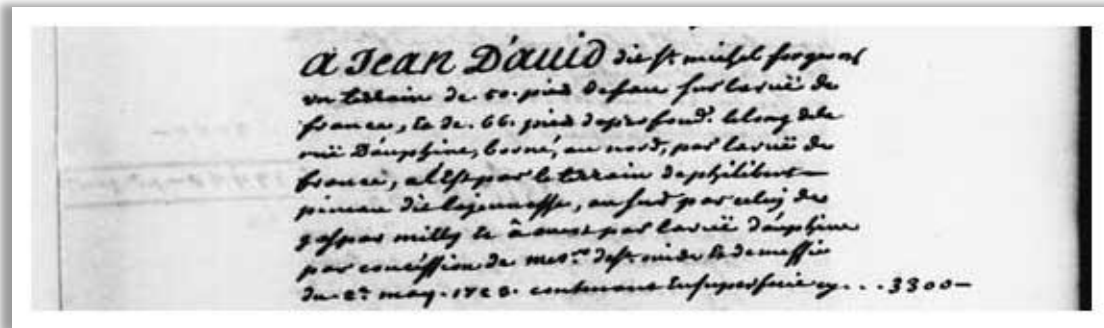 a Jean D'auid dit st. michel forgeron
un terrain de .50. pieds de face sur la ruë de
france, et de .66. pieds de profond.r le long de la
ruë Dauphine, borné, au nord, par la ruë de
france, a l'Est par le terrain de philibert
pineau dit lajeunesse, au sud par celuy de
gaspar milly et à ouest par la ruë dauphine
par concession de mes.rs de st. ovide et de messie
du .2e. may .1723. contenant en superficie cy ... 3300-